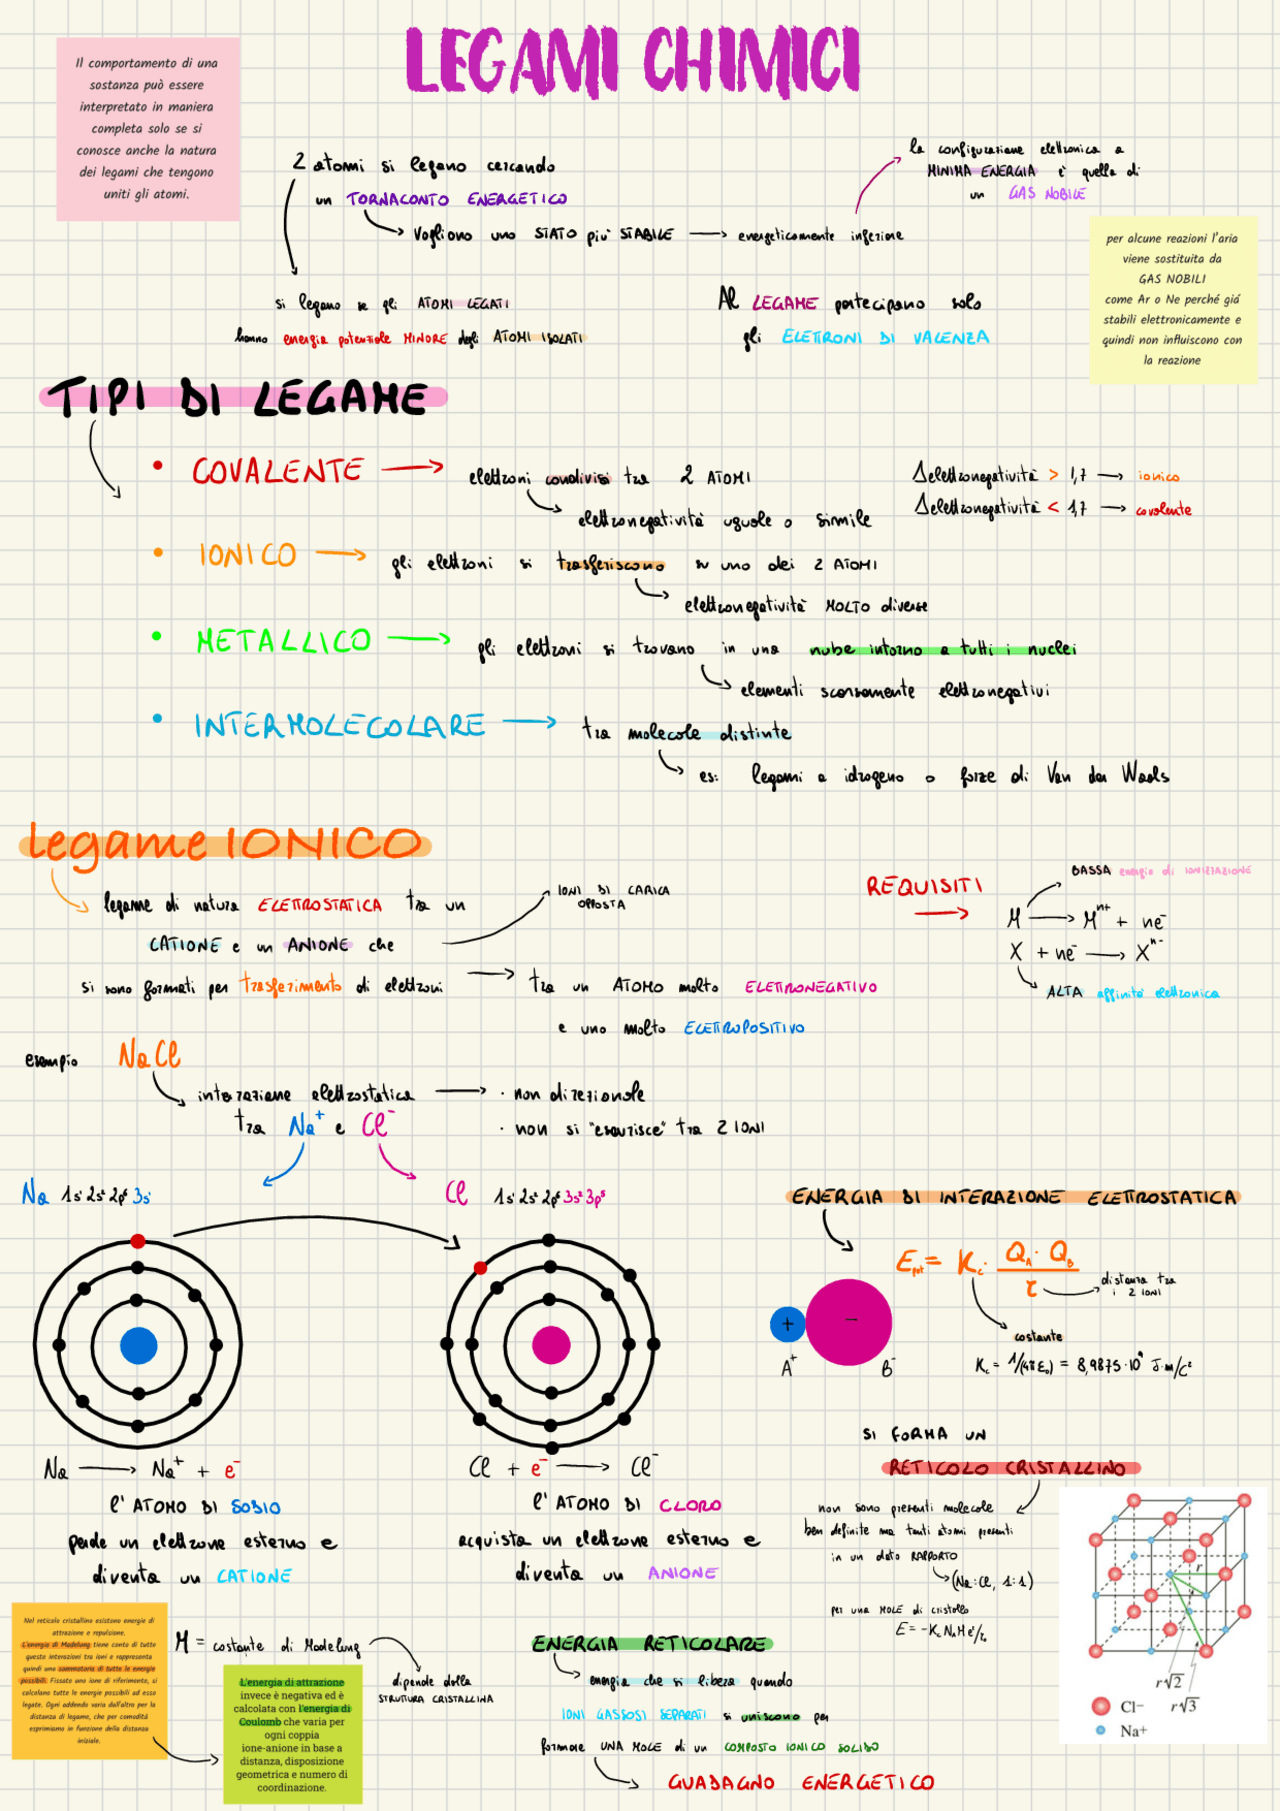 LEGAMI CHIMICI
Il comportamento di una
sostanza può essere
interpretato in maniera
completa solo se si
conosce anche la natura
dei legami che tengono
uniti gli atomi.
2 atomi si legano cercando
un TORNACONTO ENERGETICO
Vogliono uno STATO più STABILE → energeticamente inferiore
la configurazione elettronica a
MINIMA ENERGIA è quella di
un GAS NOBILE
per alcune reazioni l'aria
viene sostituita da
GAS NOBILI
come Ar o Ne perché giá
stabili elettronicamente e
quindi non influiscono con
la reazione
si legano se gli ATOMI LEGATI
hanno energia potenziale MINORE degli ATOMI ISOLATI
Al LEGAME partecipano solo
gli ELETTRONI DI VALENZA
TIPI DI LEGAME
• COVALENTE → elettroni condivisi tra 2 ATOMI
elettronegatività uguale o simile
Δelettronegatività > 1,7 → ionico
Δelettronegatività < 1,7 → covalente
• IONICO → gli elettroni si trasferiscono su uno dei 2 ATOMI
elettronegatività MOLTO diverse
• METALLICO → gli elettroni si trovano in una nube intorno a tutti i nuclei
elementi scarsamente elettronegativi
• INTERMOLECOLARE → tra molecole distinte
es: legami a idrogeno o forze di Van der Waals
legame IONICO
legame di natura ELETTROSTATICA tra un
CATIONE e un ANIONE che
IONI DI CARICA
OPPOSTA
si sono formati per trasferimento di elettroni → tra un ATOMO molto ELETTRONEGATIVO
e uno molto ELETTROPOSITIVO
REQUISITI →
BASSA energia di IONIZZAZIONE
M → Mⁿ⁺ + ne⁻
X + ne⁻ → Xⁿ⁻
ALTA affinità elettronica
esempio NaCl
interazione elettrostatica → · non direzionale
tra Na⁺ e Cl⁻ · non si "esaurisce" tra 2 IONI
Na 1s² 2s² 2p⁶ 3s¹
Cl 1s² 2s² 2p⁶ 3s² 3p⁵
Na → Na⁺ + e⁻
l'ATOMO DI SODIO
perde un elettrone esterno e
diventa un CATIONE
Cl + e⁻ → Cl⁻
l'ATOMO DI CLORO
acquista un elettrone esterno e
diventa un ANIONE
ENERGIA DI INTERAZIONE ELETTROSTATICA
Epot = Kc · QA · QB / r
distanza tra
i 2 IONI
costante
Kc = 1/(4πε₀) = 8,9875·10⁹ J·m/C²
+ −
A⁺ B⁻
SI FORMA UN
RETICOLO CRISTALLINO
non sono presenti molecole
ben definite ma tanti atomi presenti
in un dato RAPPORTO
(Na:Cl, 1:1)
per una MOLE di cristallo
r
r√2
r√3
Cl−
Na+
Nel reticolo cristallino esistono energie di
attrazione e repulsione.
L'energia di Madelung tiene conto di tutte
queste interazioni tra ioni e rappresenta
quindi una sommatoria di tutte le energie
possibili. Fissato uno ione di riferimento, si
calcolano tutte le energie possibili ad esso
legate. Ogni addendo varia dall'altro per la
distanza di legame, che per comodità
esprimiamo in funzione della distanza
iniziale.
M = costante di Madelung
dipende dalla
STRUTTURA CRISTALLINA
L'energia di attrazione
invece è negativa ed è
calcolata con l'energia di
Coulomb che varia per
ogni coppia
ione-anione in base a
distanza, disposizione
geometrica e numero di
coordinazione.
ENERGIA RETICOLARE
energia che si libera quando
IONI GASSOSI SEPARATI si uniscono per
formare UNA MOLE di un COMPOSTO IONICO SOLIDO
GUADAGNO ENERGETICO